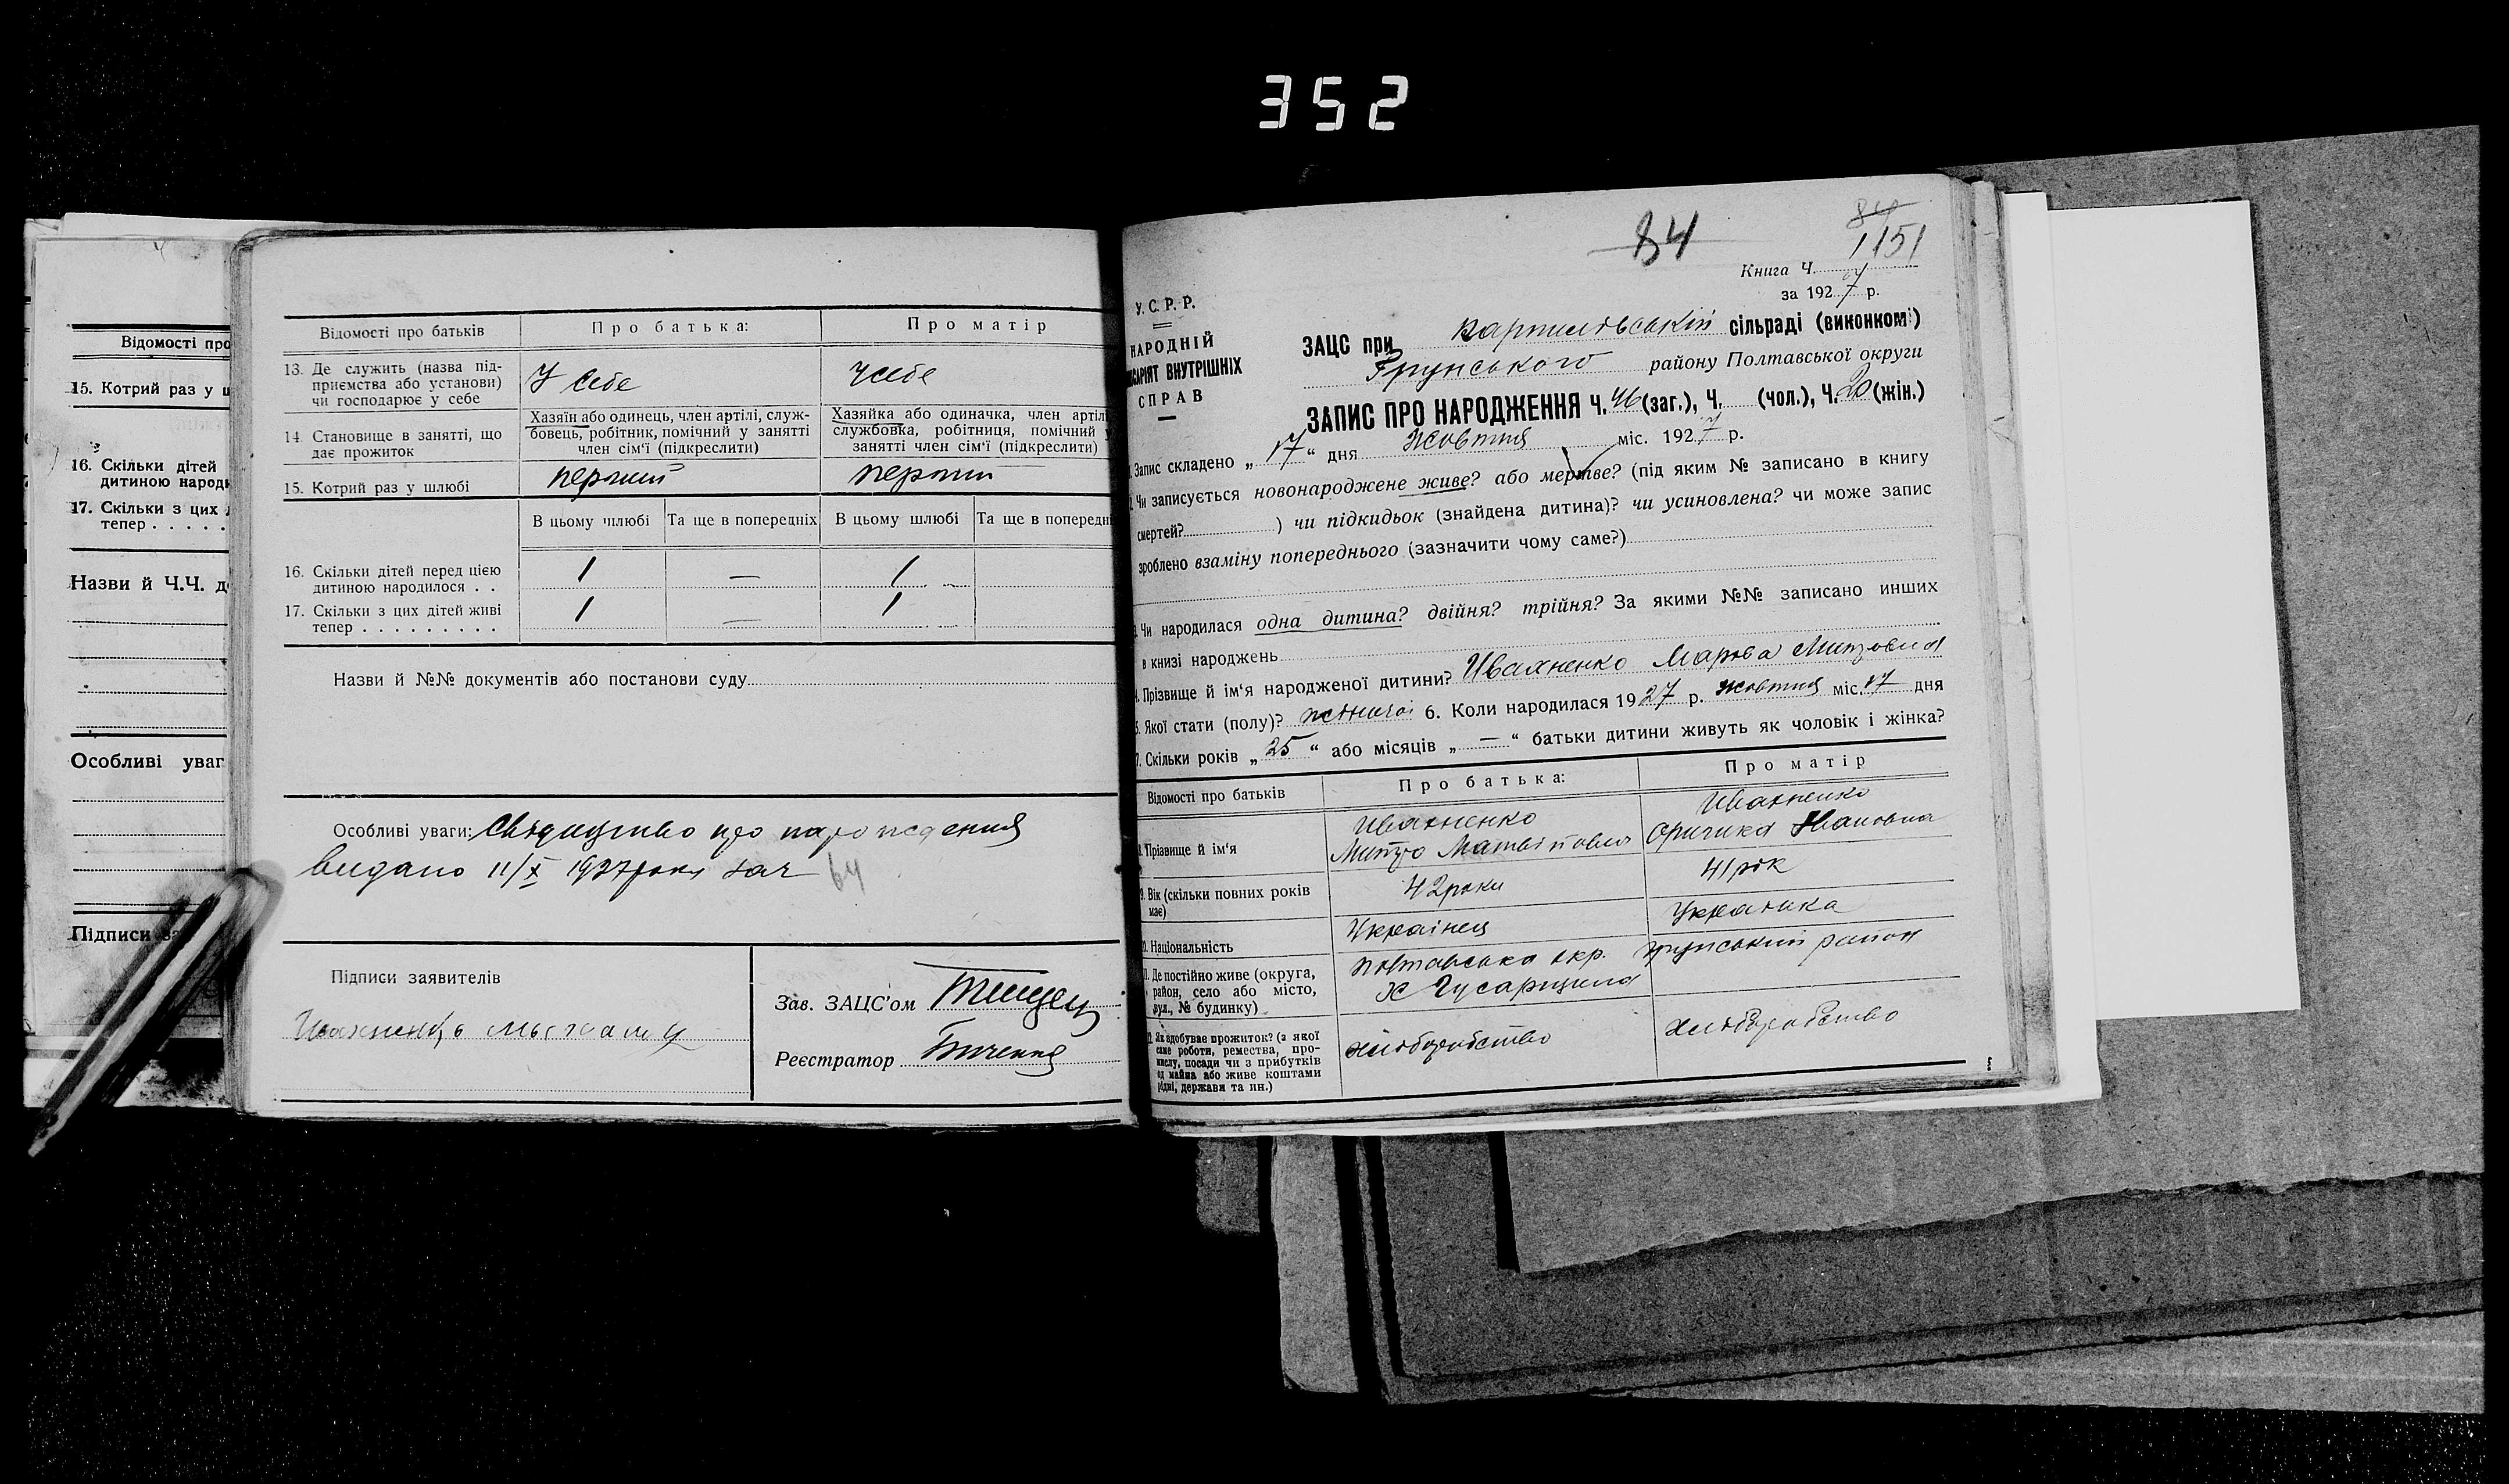 352
Відомості про
15. Котрий раз у ш
16. Скільки дітей
дитиною народ
17. Скільки з цих
тепер . . . . .
Назви й Ч.Ч. д
Особливі уваг
Підписи за
Відомості про батьків
Про батька:
Про матір
13. Де служить (назва під-
приємства або установи)
чи господарює у себе
У себе
У себе
14. Становище в занятті, що
дає прожиток
Хазяїн або одинець, член артілі, служ-
бовець, робітник, помічний у занятті
член сім'ї (підкреслити)
Хазяйка або одиначка, член артілі
службовка, робітниця, помічний у
занятті член сім'ї (підкреслити)
15. Котрий раз у шлюбі
перший
перший
В цьому шлюбі
Та ще в попередніх
В цьому шлюбі
Та ще в попередн
16. Скільки дітей перед цією
дитиною народилося . .
1 — 1 —
17. Скільки з цих дітей живі
тепер . . . . . . . . .
1 — 1 —
Назви й №№ документів або постанови суду
Особливі уваги: Свідицтво про народження
видано 11/X 1927 року за ч 64
Підписи заявителів
Зав. ЗАЦС'ом
Реєстратор
84
84
1151
Книга Ч.
за 1927 р.
У.С.Р.Р.
НАРОДНІЙ
САРІЯТ ВНУТРІШНІХ
СПРАВ
ЗАЦС при Карпилівській сільраді (виконкомі)
Грунського району Полтавської округи
ЗАПИС ПРО НАРОДЖЕННЯ Ч. 46 (заг.), Ч. (чол.), Ч. 20 (жін.)
Запис складено „ 17 “ дня Жовтня міс. 1927 р.
Чи записується новонароджене живе? або мертве? (під яким № записано в книгу
смертей? ) чи підкидьок (знайдена дитина)? чи усиновлена? чи може запис
зроблено взаміну попереднього (зазначити чому саме?)
Чи народилася одна дитина? двійня? трійня? За якими №№ записано инших
в книзі народжень
4. Прізвище й ім'я народженої дитини? Ивахненко Марфа
5. Якої стати (полу)? жіночої 6. Коли народилася 1927 р. жовтня міс. 17 дня
7. Скільки років „ 25 “ або місяців „ — “ батьки дитини живуть як чоловік і жінка?
Відомості про батьків
Про батька:
Про матір
Прізвище й ім'я
Ивахненко
Митро Матвійович
Ивахненко
Оришка Ивановна
9. Вік (скільки повних років
має)
42 роки
41 рік
Національність
Українец
Українка
Де постійно живе (округа,
район, село або місто,
вул., № будинку)
Полтавська окр. Грунський район
х Гусарщина
Як здобуває прожиток? (з якої
саме роботи, ремества, про-
мислу, посади чи з прибутків
од майна або живе коштами
рідні, держави та ин.)
хліборобство
хліборобство